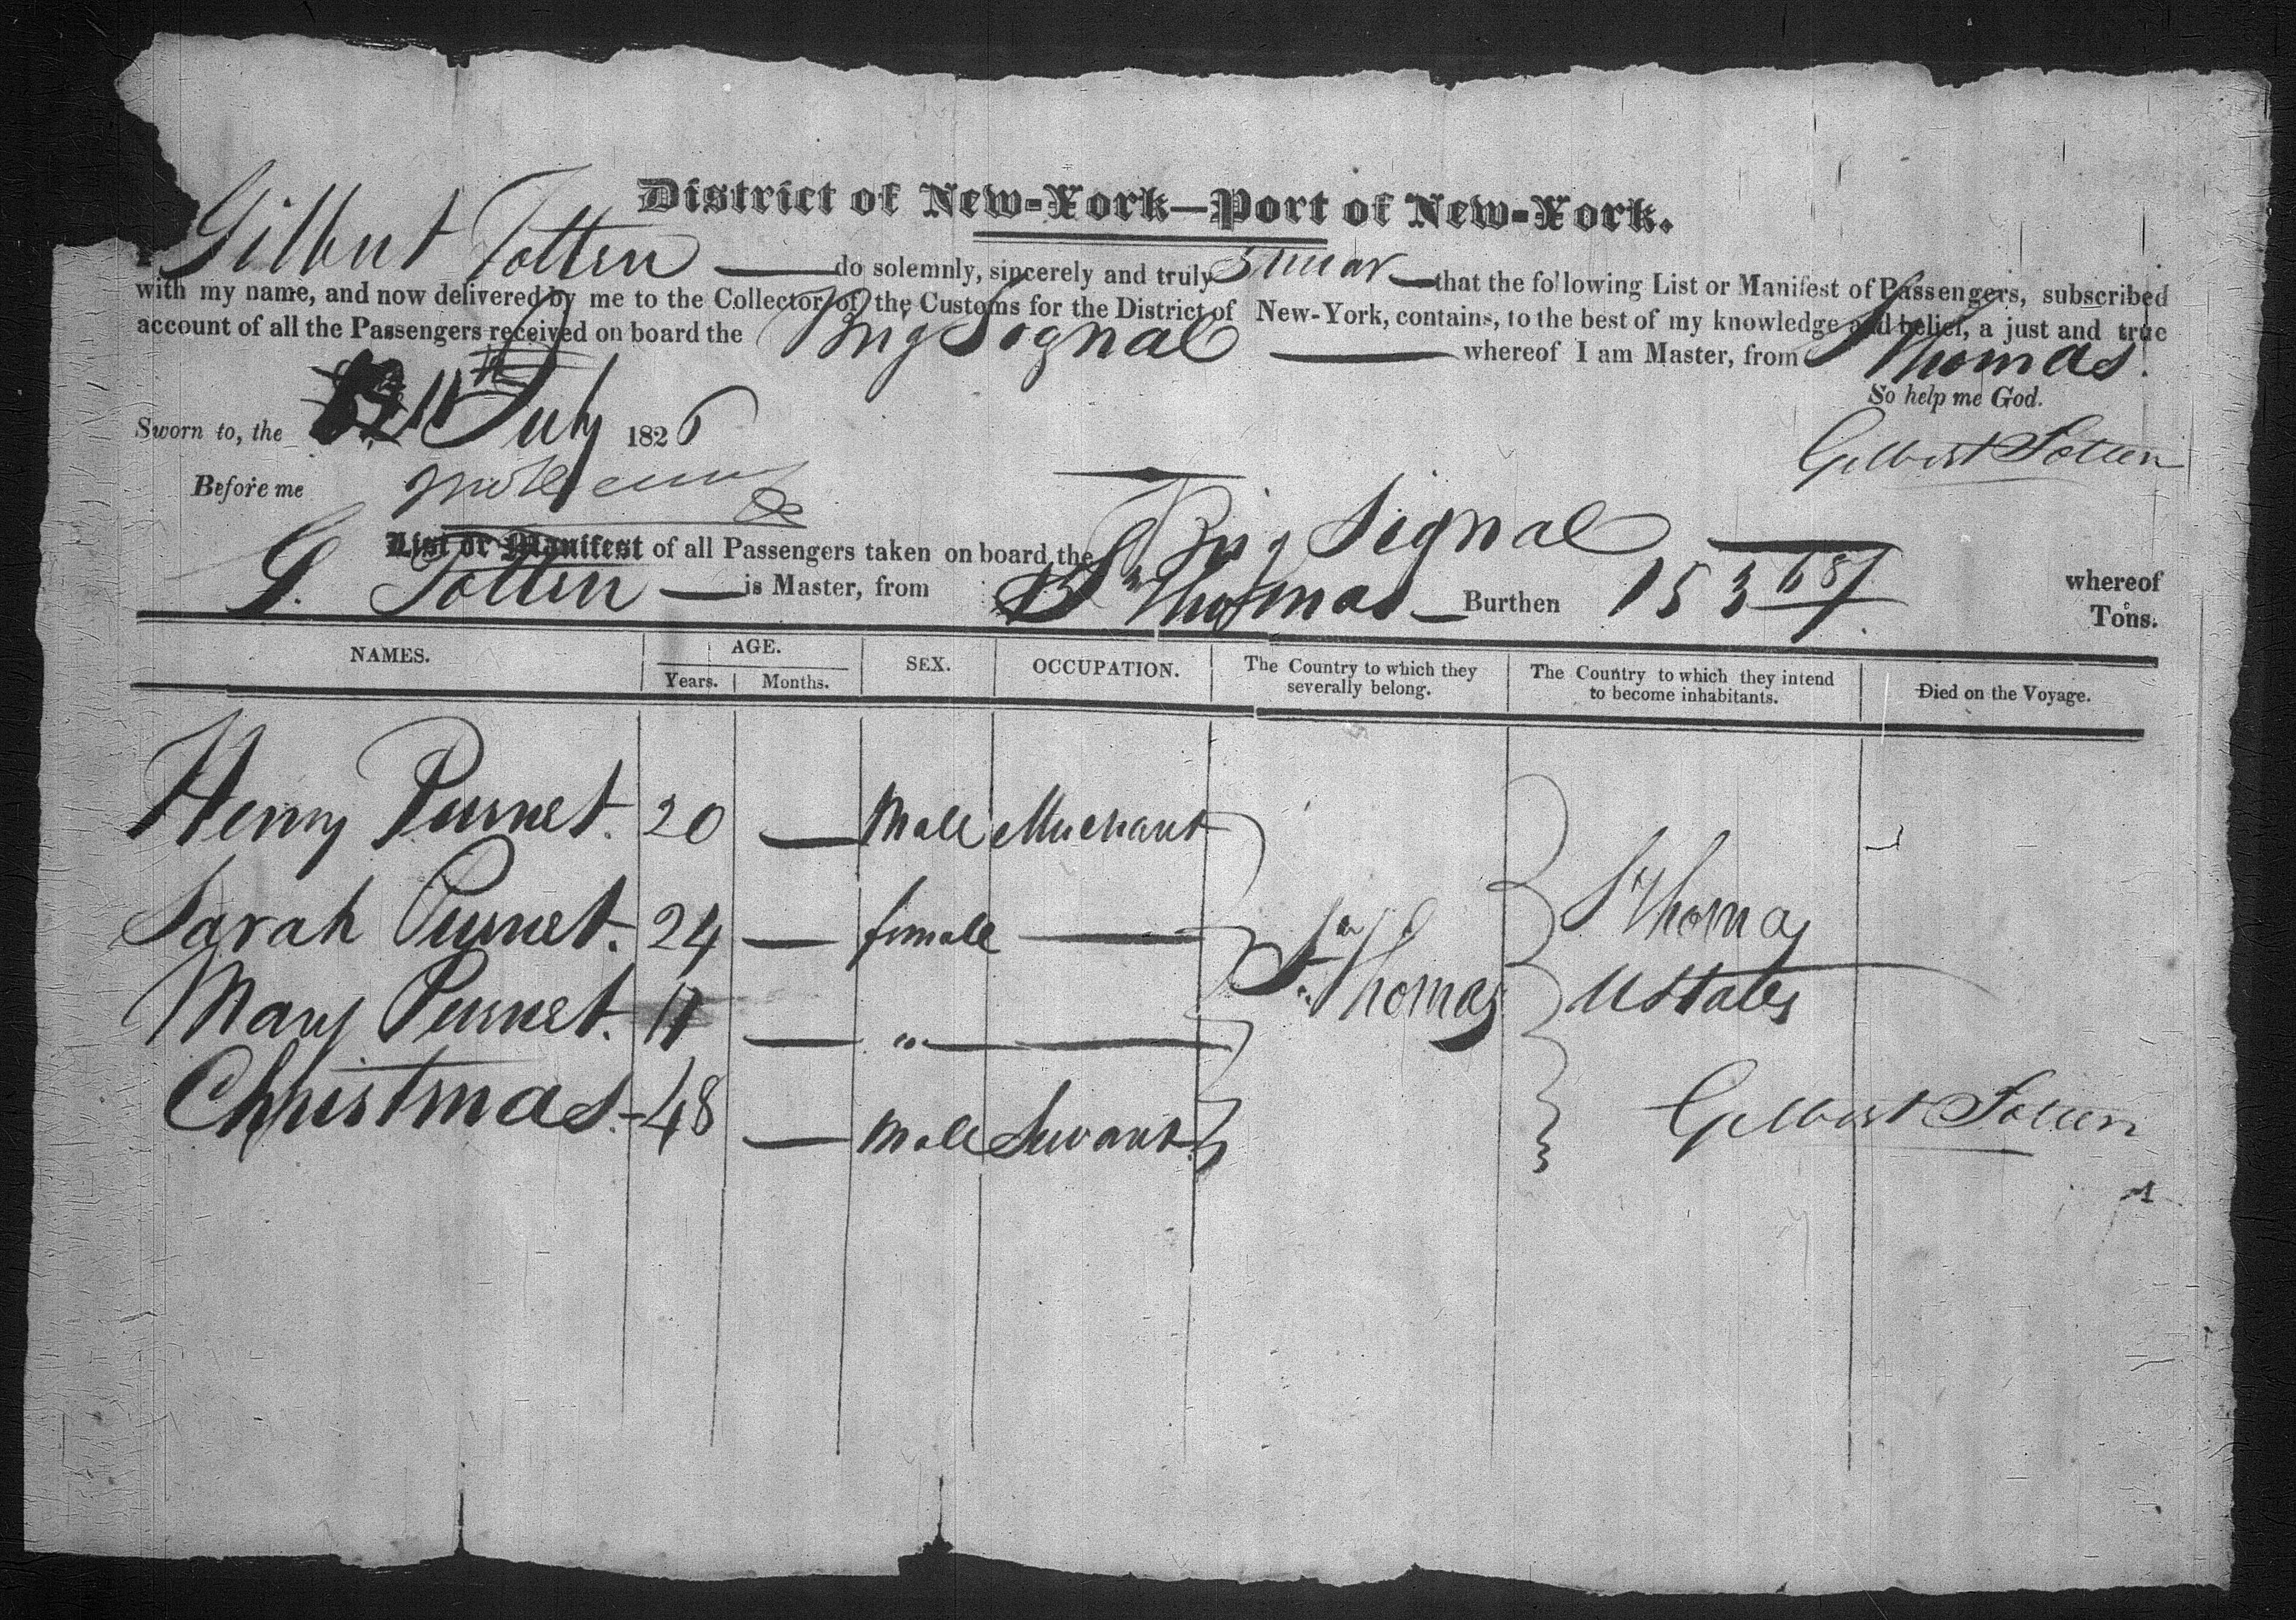 District of New-York—Port of New-York.
Gilbert Totten — do solemnly, sincerely and truly swear — that the following List or Manifest of Passengers, subscribed
with my name, and now delivered by me to the Collector of the Customs for the District of New-York, contains, to the best of my knowledge and belief, a just and true
account of all the Passengers received on board the Brig Signal — whereof I am Master, from St Thomas.
So help me God.
Sworn to, the 11th July 1826
Gilbert Totten
Before me
List or Manifest of all Passengers taken on board the Brig Signal — whereof
G. Totten — is Master, from St Thomas — Burthen 153 Tons.
NAMES. AGE. SEX. OCCUPATION. The Country to which they severally belong. The Country to which they intend to become inhabitants. Died on the Voyage.
Years. Months.
Henry Purnet. 20 — Male Merchant
Sarah Purnet. 24 — female — St Thomas
Mary Purnet. 11 — " — St Thomas U States
Christmas. - 48 — Male Servant
Gilbert Totten